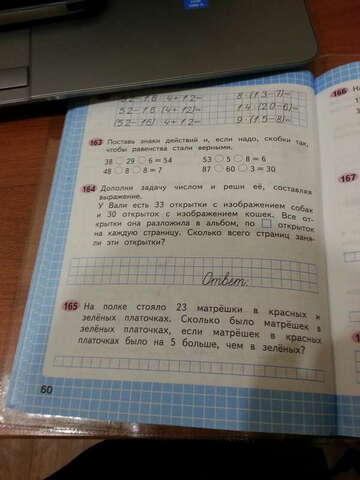 52-16:4+12=
8·(13-7)=
166
52-16:(4+12)=
14·(20-6)=
(52-16):4+12=
9·(15-8)=
163 Поставь знаки действий и, если надо, скобки так,
чтобы равенства стали верными.
38 29 6 = 54
53 5 8 = 6
48 8 8 = 7
87 60 3 = 30
164 Дополни задачу числом и реши её, составляя
выражение.
167
У Вали есть 33 открытки с изображением собак
и 30 открыток с изображением кошек. Все от-
крытки она разложила в альбом, по открыток
на каждую страницу. Сколько всего страниц заня-
ли эти открытки?
Ответ:
165 На полке стояло 23 матрёшки в красных и
зелёных платочках. Сколько было матрёшек в
зелёных платочках, если матрёшек в красных
платочках было на 5 больше, чем в зелёных?
60